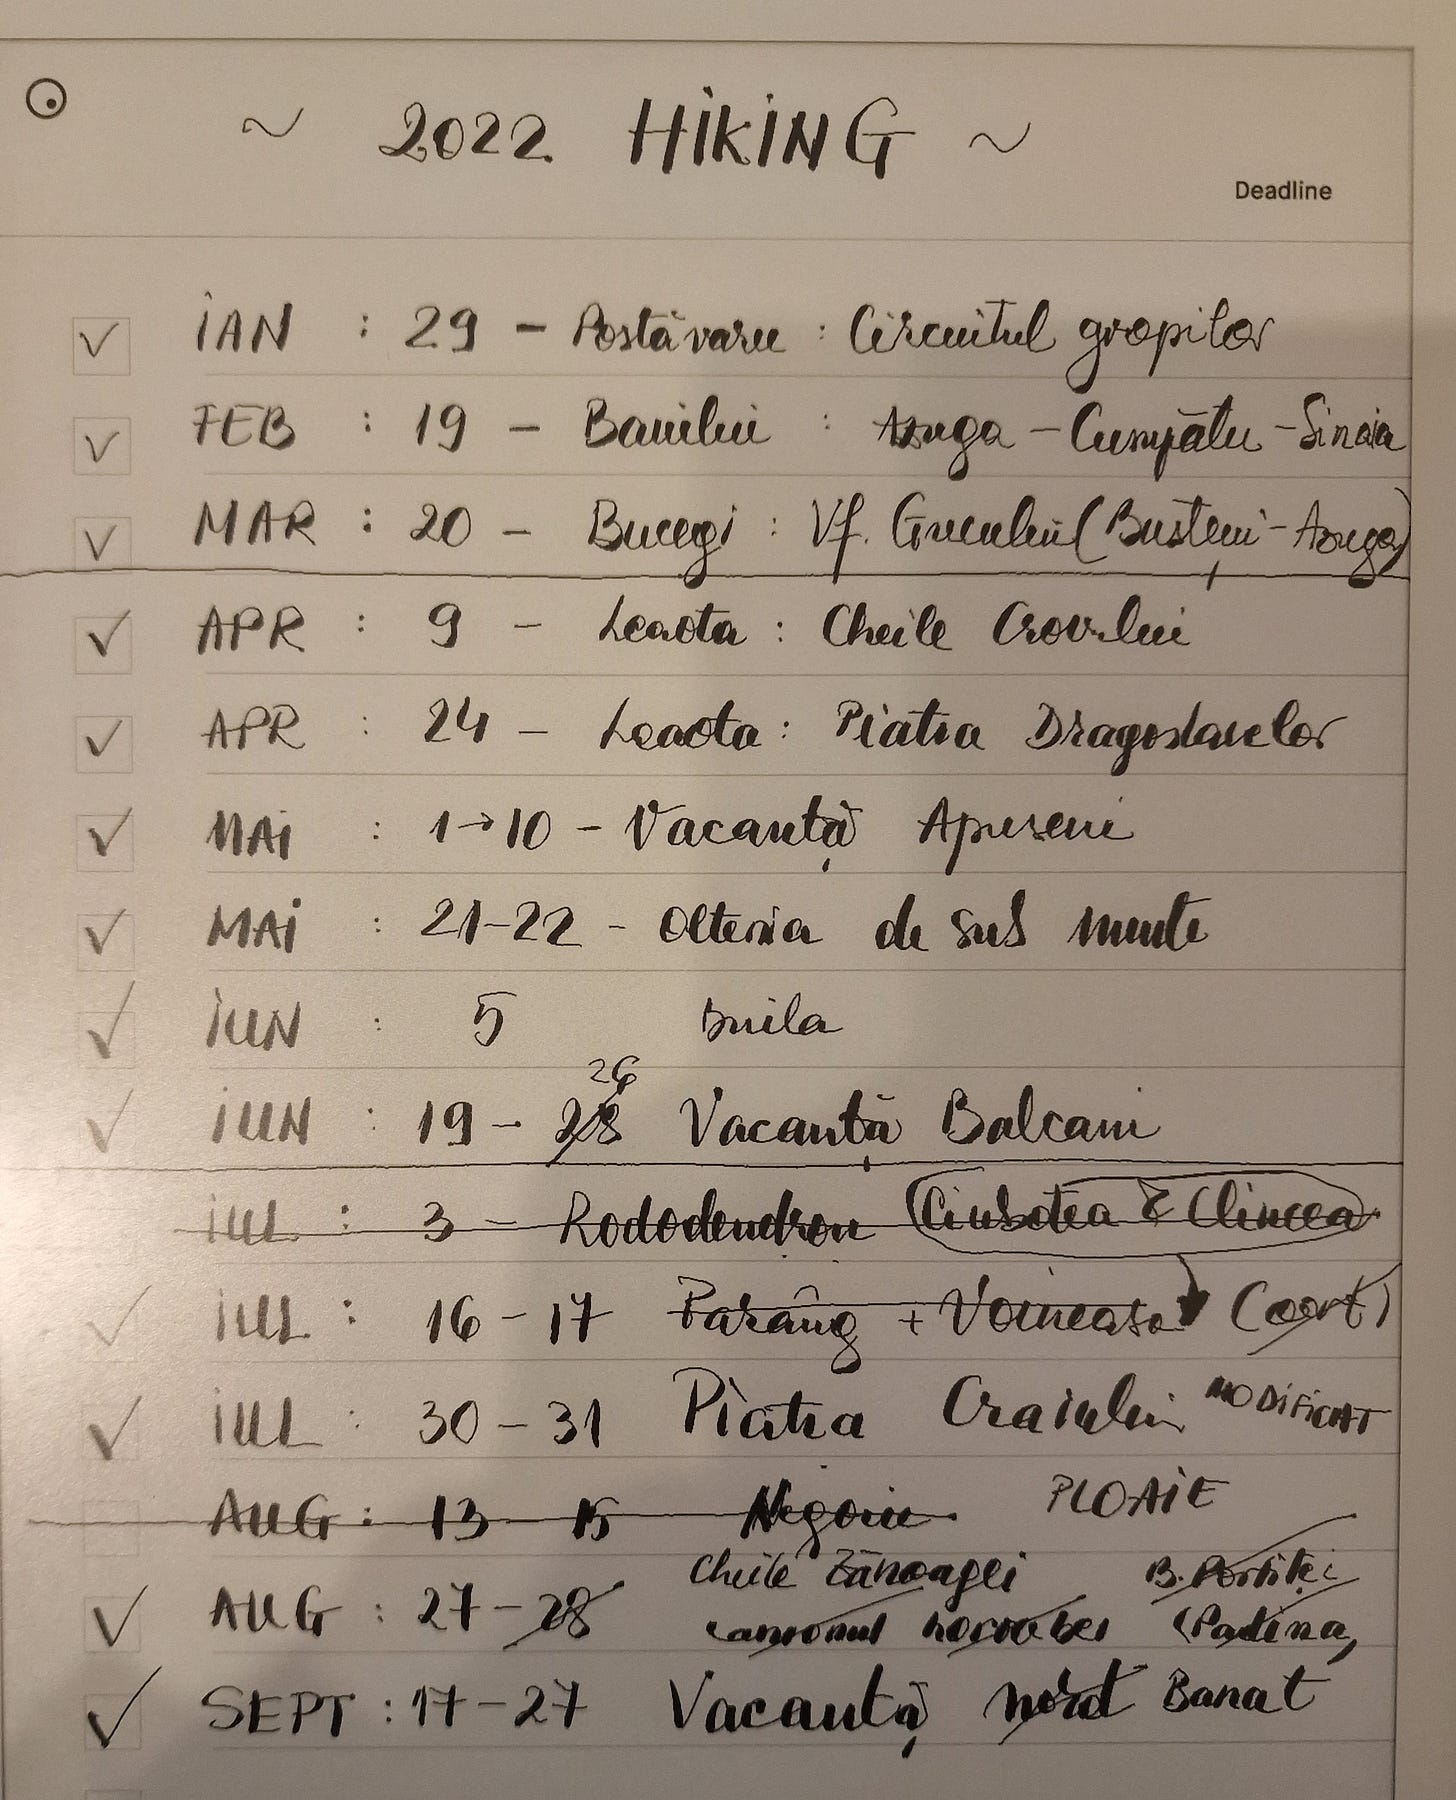 ~ 2022 HIKING ~
Deadline
IAN : 29 - Postăvaru : Circuitul gropilor
FEB : 19 - Baiului : Azuga - Cumpătu - Sinaia
MAR : 20 - Bucegi : Vf. Grecului (Bușteni - Azuga)
APR : 9 - Leaota : Cheile Crovului
APR : 24 - Leaota : Piatra Dragoslavelor
MAI : 1→10 - Vacanță Apuseni
MAI : 21-22 - Oltenia de sub munte
IUN : 5 Buila
26
IUN : 19 - 28 Vacanță Balcani
IUL : 3 - Rododendron (Ciubotea & Clincea)
IUL : 16 - 17 Parâng + Voineasa (cort)
IUL : 30 - 31 Piatra Craiului MODIFICAT
AUG : 13 - 15 Negoiu PLOAIE
Cheile Zănoagei B. Portiței
AUG : 27 - 28 canionul horoabei (Padina,
SEPT : 17 - 27 Vacanță nord Banat